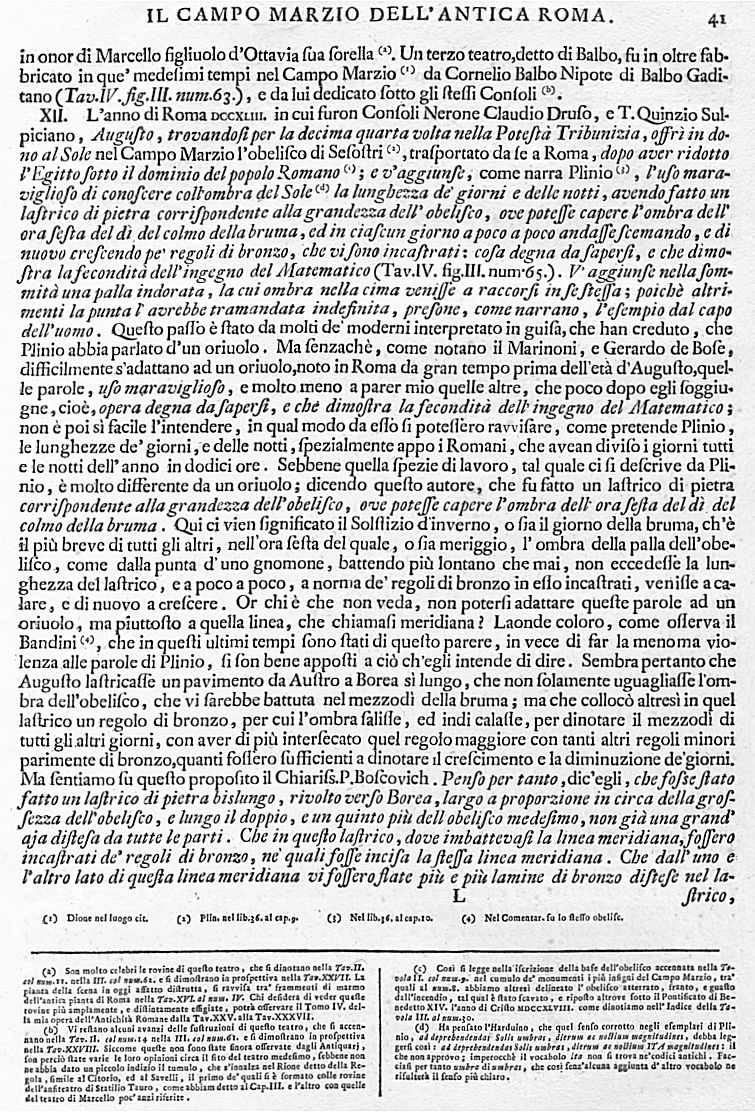 IL CAMPO MARZIO DELL'ANTICA ROMA. 41
in onor di Marcello figliuolo d'Ottavia ſua ſorella (a). Un terzo teatro,detto di Balbo, fu in oltre fab-
bricato in que' medeſimi tempi nel Campo Marzio (1) da Cornelio Balbo Nipote di Balbo Gadi-
tano (Tav.IV. fig.III. num.63.), e da lui dedicato ſotto gli ſteſſi Conſoli (b).
XII. L'anno di Roma DCCXLIII. in cui furon Conſoli Nerone Claudio Druſo, e T. Quinzio Sul-
piciano, Auguſto, trovandoſi per la decima quarta volta nella Poteſtà Tribunizia, offrì in do-
no al Sole nel Campo Marzio l'obeliſco di Seſoſtri (c), traſportato da ſe a Roma, dopo aver ridotto
l'Egitto ſotto il dominio del popolo Romano (2); e v'aggiunſe, come narra Plinio (3), l'uſo mara-
viglioſo di conoſcere coll'ombra del Sole (d) la lunghezza de' giorni e delle notti, avendo fatto un
laſtrico di pietra corriſpondente alla grandezza dell' obeliſco, ove poteſſe capere l'ombra dell'
ora ſeſta del dì del colmo della bruma, ed in ciaſcun giorno a poco a poco andaſſe ſcemando, e di
nuovo creſcendo pe' regoli di bronzo, che vi ſono incaſtrati: coſa degna da ſaperſi, e che dimo-
ſtra la fecondità dell'ingegno del Matematico (Tav.IV. fig.III. num.65.). V' aggiunſe nella ſom-
mità una palla indorata, la cui ombra nella cima veniſſe a raccorſi in ſe ſteſſa; poichè altri-
menti la punta l' avrebbe tramandata indefinita, preſone, come narrano, l'eſempio dal capo
dell'uomo. Queſto paſſo è ſtato da molti de' moderni interpretato in guiſa, che han creduto, che
Plinio abbia parlato d'un oriuolo. Ma ſenzachè, come notano il Marinoni, e Gerardo de Boſe,
difficilmente s'adattano ad un oriuolo,noto in Roma da gran tempo prima dell'età d'Auguſto,quel-
le parole, uſo maraviglioſo, e molto meno a parer mio quelle altre, che poco dopo egli ſoggiu-
gne, cioè, opera degna da ſaperſi, e che dimoſtra la fecondità dell' ingegno del Matematico;
non è poi sì facile l'intendere, in qual modo da eſſo ſi poteſſero ravviſare, come pretende Plinio,
le lunghezze de' giorni, e delle notti, ſpezialmente appo i Romani, che avean diviſo i giorni tutti
e le notti dell' anno in dodici ore. Sebbene quella ſpezie di lavoro, tal quale ci ſi deſcrive da Pli-
nio, è molto differente da un oriuolo; dicendo queſto autore, che fu fatto un laſtrico di pietra
corriſpondente alla grandezza dell'obeliſco, ove poteſſe capere l'ombra dell' ora ſeſta del dì del
colmo della bruma. Qui ci vien ſignificato il Solſtizio d'inverno, o ſia il giorno della bruma, ch'è
il più breve di tutti gli altri, nell'ora ſeſta del quale, o ſia meriggio, l' ombra della palla dell'obe-
liſco, come dalla punta d' uno gnomone, battendo più lontano che mai, non eccedeſſe la lun-
ghezza del laſtrico, e a poco a poco, a norma de' regoli di bronzo in eſſo incaſtrati, veniſſe a ca-
lare, e di nuovo a creſcere. Or chi è che non veda, non poterſi adattare queſte parole ad un
oriuolo, ma piuttoſto a quella linea, che chiamaſi meridiana? Laonde coloro, come oſſerva il
Bandini (4), che in queſti ultimi tempi ſono ſtati di queſto parere, in vece di far la menoma vio-
lenza alle parole di Plinio, ſi ſon bene appoſti a ciò ch'egli intende di dire. Sembra pertanto che
Auguſto laſtricaſſe un pavimento da Auſtro a Borea sì lungo, che non ſolamente uguagliaſſe l'om-
bra dell'obeliſco, che vi ſarebbe battuta nel mezzodì della bruma; ma che collocò altresì in quel
laſtrico un regolo di bronzo, per cui l'ombra ſaliſſe, ed indi calaſſe, per dinotare il mezzodì di
tutti gli altri giorni, con aver di più interſecato quel regolo maggiore con tanti altri regoli minori
parimente di bronzo,quanti foſſero ſufficienti a dinotare il creſcimento e la diminuzione de'giorni.
Ma ſentiamo ſu queſto propoſito il Chiariſs.P.Boſcovich. Penſo per tanto, dic'egli, che foſse ſtato
fatto un laſtrico di pietra bislungo, rivolto verſo Borea, largo a proporzione in circa della groſ-
ſezza dell'obeliſco, e lungo il doppio, e un quinto più dell obeliſco medeſimo, non già una grand'
aja diſteſa da tutte le parti. Che in queſto laſtrico, dove imbattevaſi la linea meridiana, foſſero
incaſtrati de' regoli di bronzo, ne' quali foſſe inciſa la ſteſſa linea meridiana. Che dall' uno e
l'altro lato di queſta linea meridiana vi foſſero ſtate più e più lamine di bronzo diſteſe nel la-
L ſtrico,
(1) Dione nel luogo cit. (2) Plin. nel lib.36. al cap.9. (3) Nel lib.36. al cap.10. (4) Nel Comentar. ſu lo ſteſſo obeliſc.
(a) Son molto celebri le rovine di queſto teatro, che ſi dinotano nella Tav.II.
col num.11. nella III. col num.62. e ſi dimoſtrano in proſpettiva nella Tav.XXVII. La
pianta della ſcena in oggi affatto diſtrutta, ſi ravviſa tra' frammenti di marmo
dell'antica pianta di Roma nella Tav.XVI. al num. IV. Chi deſidera di veder queſte
rovine più ampiamente, e diſtintamente effigiate, potrà oſſervare il Tomo IV. del-
la mia opera dell'Antichità Romane dalla Tav.XXV. alla Tav.XXXVII.
(b) Vi reſtano alcuni avanzi delle ſuſtruzioni di queſto teatro, che ſi accen-
nano nella Tav. II. col num.14 nella III. col num.61. e ſi dimoſtrano in proſpettiva
nella Tav.XXVIII. Siccome queſte non ſono ſtate finora oſſervate dagli Antiquarj,
ſon perciò ſtate varie le loro opinioni circa il ſito del teatro medeſimo, ſebbene non
ne abbia dato un piccolo indizio il tumulo, che s'innalza nel Rione detto della Re-
gola, ſimile al Citorio, ed al Savelli, il primo de' quali ſi è formato colle rovine
dell'anfiteatro di Statilio Tauro, come abbiam detto al Cap.III. e l'altro con quelle
del teatro di Marcello poc' anzi riferite.
(c) Così ſi legge nella iſcrizione della baſe dell'obeliſco accennata nella Ta-
vola II. col num.9. nel cumulo de' monumenti i più inſigni del Campo Marzio, tra'
quali al num.8. abbiamo altresì delineato l' obeliſco atterrato, franto, e guaſto
dall'incendio, tal qual è ſtato ſcavato, e ripoſto altrove ſotto il Pontificato di Be-
nedetto XIV. l'anno di Criſto MDCCXLVIII. come dinotiamo nell' Indice della Ta-
vola III. al num.30.
(d) Ha penſato l'Harduino, che quel ſenſo corrotto negli eſemplari di Pli-
nio, ad deprehendendas Solis umbras, dierum ac noctium magnitudines, debba leg-
gerſi così: ad deprehendendas Solis umbras, dierum ac noctium ITA magnitudines: il
che non approvo; imperocchè il vocabolo ita non ſi trova ne'codici antichi. Fac-
ciaſi per tanto umbra di umbras, che così ſenz'alcuna aggiunta d' altro vocabolo ne
riſulterà il ſenſo più chiaro.